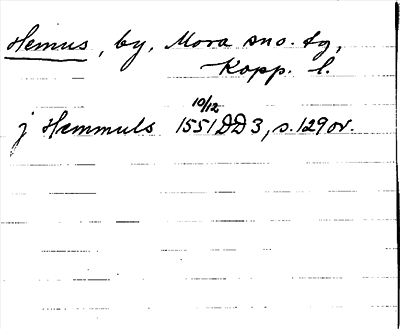 Hemus, by, Mora sno. tg,
Kopp. l.
10/12
j Hemmuls 1551 DD 3, s. 129 ov.